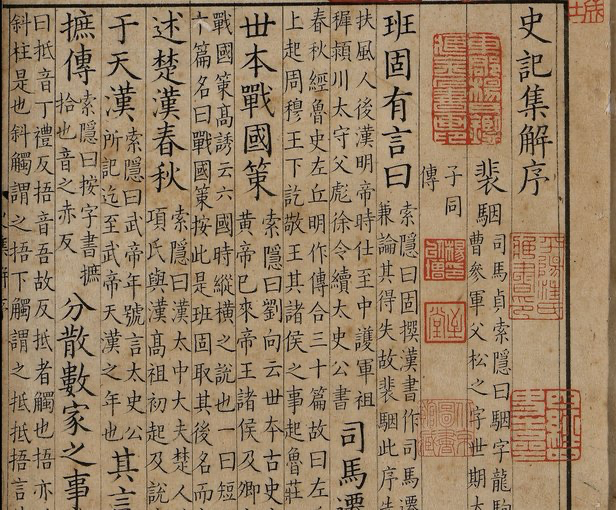 史記集解序
裴駰
司馬貞索隱曰駰字龍駒
曹參軍父松之字世期太
子同
傳
班固有言曰
索隱曰固撰漢書作司馬遷
兼論其得失故裴駰此序先
扶風人後漢明帝時仕至中護軍祖
穉潁川太守父彪徐令續太史公書
司馬遷
春秋經魯史左丘明作傳合三十篇故曰左
上起周穆王下訖敬王其諸侯之事起魯莊
丗本戰國策
索隱曰劉向云丗本古史
黃帝已來帝王諸侯及卿
戰國策高誘云六國時縱橫之說也一曰短
六篇名曰戰國策按此是班固取其後名而
述楚漢春秋
索隱曰漢太中大夫楚人
項氏與漢高祖初起及說
于天漢
索隱曰武帝年號言太史公
所記迄至武帝天漢之年也
其言
摭傳
索隱曰按字書摭
拾也音之赤反
分散數家之事
曰抵音丁禮反捂音吾故反抵者觸也捂亦
斜柱是也斜觸謂之捂下觸謂之抵抵捂言